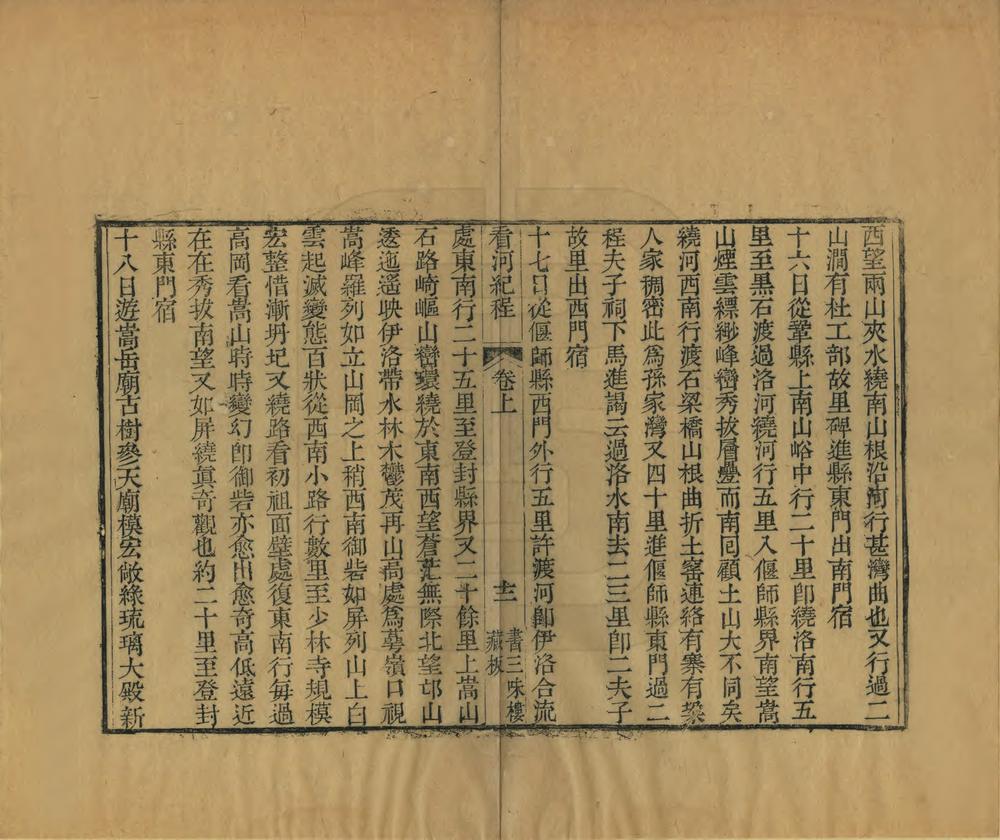 西望兩山夾水繞南山根沿河行甚灣曲也又行過二
山澗有杜工部故里碑進縣東門出南門宿
十六日從鞏縣上南山峪中行二十里卽繞洛南行五
里至黑石渡過洛河繞河行五里入偃師縣界南望嵩
山煙雲縹緲峰巒秀拔層疊而南囘顧土山大不同矣
繞河西南行渡石梁橋山根曲折土窰連絡有寨有梁
人家稠密此爲孫家灣又四十里進偃師縣東門過二
程夫子祠下馬進謁云過洛水南去二三里卽二夫子
故里出西門宿
十七日從偃師縣西門外行五里許渡河卽伊洛合流
看河紀程
卷上
十二
書三味樓
藏板
處東南行二十五里至登封縣界又二十餘里上嵩山
石路崎嶇山巒環繞於東南西望蒼茫無際北望邙山
透迤遥映伊洛帶水林木鬱茂再山高處爲蕚嶺口視
嵩峰羅列如立山岡之上稍西南御砦如屏列山上白
雲起滅變態百狀從西南小路行數里至少林寺規模
宏整惜漸坍圮又繞路看初祖面壁處復東南行每過
高岡看嵩山時時變幻卽御砦亦愈出愈奇高低遠近
在在秀拔南望又如屏繞眞奇觀也約二十里至登封
縣東門宿
十八日遊嵩岳廟古樹參天廟模宏敞綠琉璃大殿新